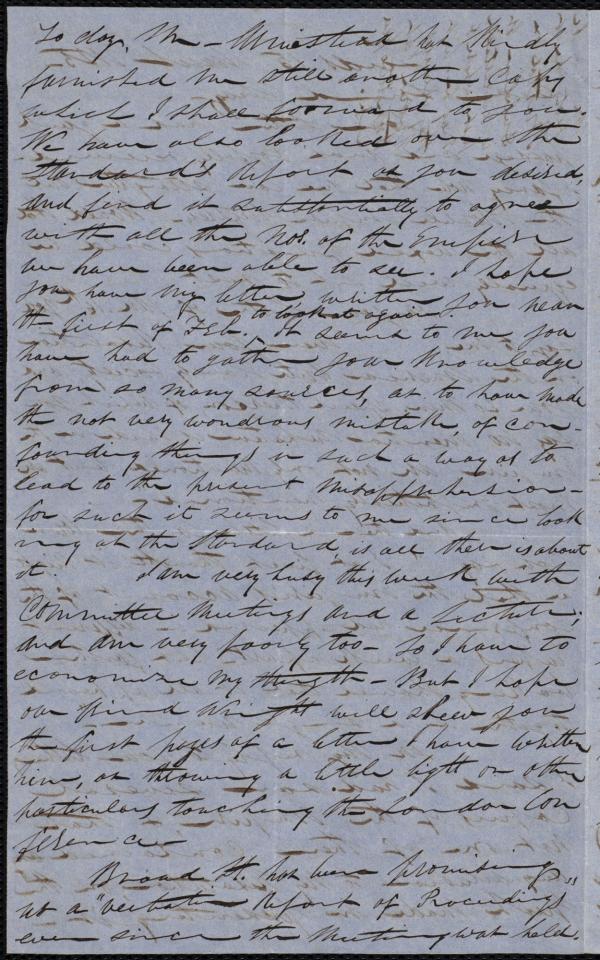 To day, Mr - Armistead has kindly
furnished me still another Copy
which I shall forward to you.
We have also looked over the
Standard's Report as you desired,
and find it substantially to agree
with all the Nos. of the Empire
we have been able to see. I hope
you have my letter written you near
the first of Feb. to look at again. It seems to me you
have had to gather your knowledge
from so many sources, as to have made
the not very wondrous mistake, of con-
founding things in such a way as to
lead to the present misapprehension -
for such it seems to me since look
ing at the Standard, is all there is about
it. I am very busy this week with
Committee Meetings and a Lecture;
and am very poorly too - So I have to
economize my strength - But I hope
our friend Wright will shew you
the first pages of a letter I have written
him, as throwing a little light on other
particulars touching the London Con
ference -
Broad St. has been promising
us a "verbatim Report of Proceedings"
ever since the Meeting was held.